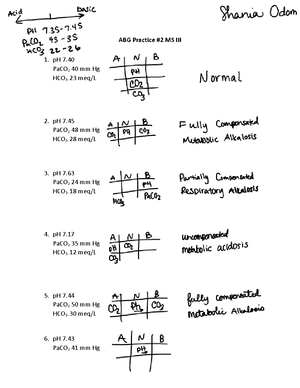 Shania Odom
Acid basic
pH 7.35-7.45
PaCO₂ 45-35
HCO₃ 22-26
ABG Practice #2 MS III
1. pH 7.40
PaCO₂ 40 mm Hg
HCO₃ 23 meq/L
A N B
pH
CO₂
CO₃
Normal
2. pH 7.45
PaCO₂ 48 mm Hg
HCO₃ 28 meq/L
A N B
CO₂ pH CO₃
Fully Compensated
Metabolic Alkalosis
3. pH 7.63
PaCO₂ 24 mm Hg
HCO₃ 18 meq/L
A N B
pH
HCO₃ PaCO₂
Partially Compensated
Respiratory Alkalosis
4. pH 7.17
PaCO₂ 35 mm Hg
HCO₃ 12 meq/L
A N B
pH CO₂
CO₃
uncompensated
metabolic acidosis
5. pH 7.44
PaCO₂ 50 mm Hg
HCO₃ 30 meq/L
A N B
CO₂ pH CO₃
fully compensated
Metabolic Alkalosis
6. pH 7.43
PaCO₂ 41 mm Hg
A N B
pH